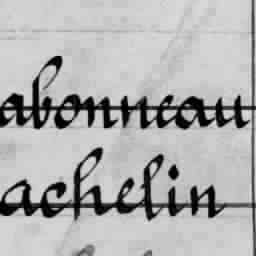 abonneau
achelin